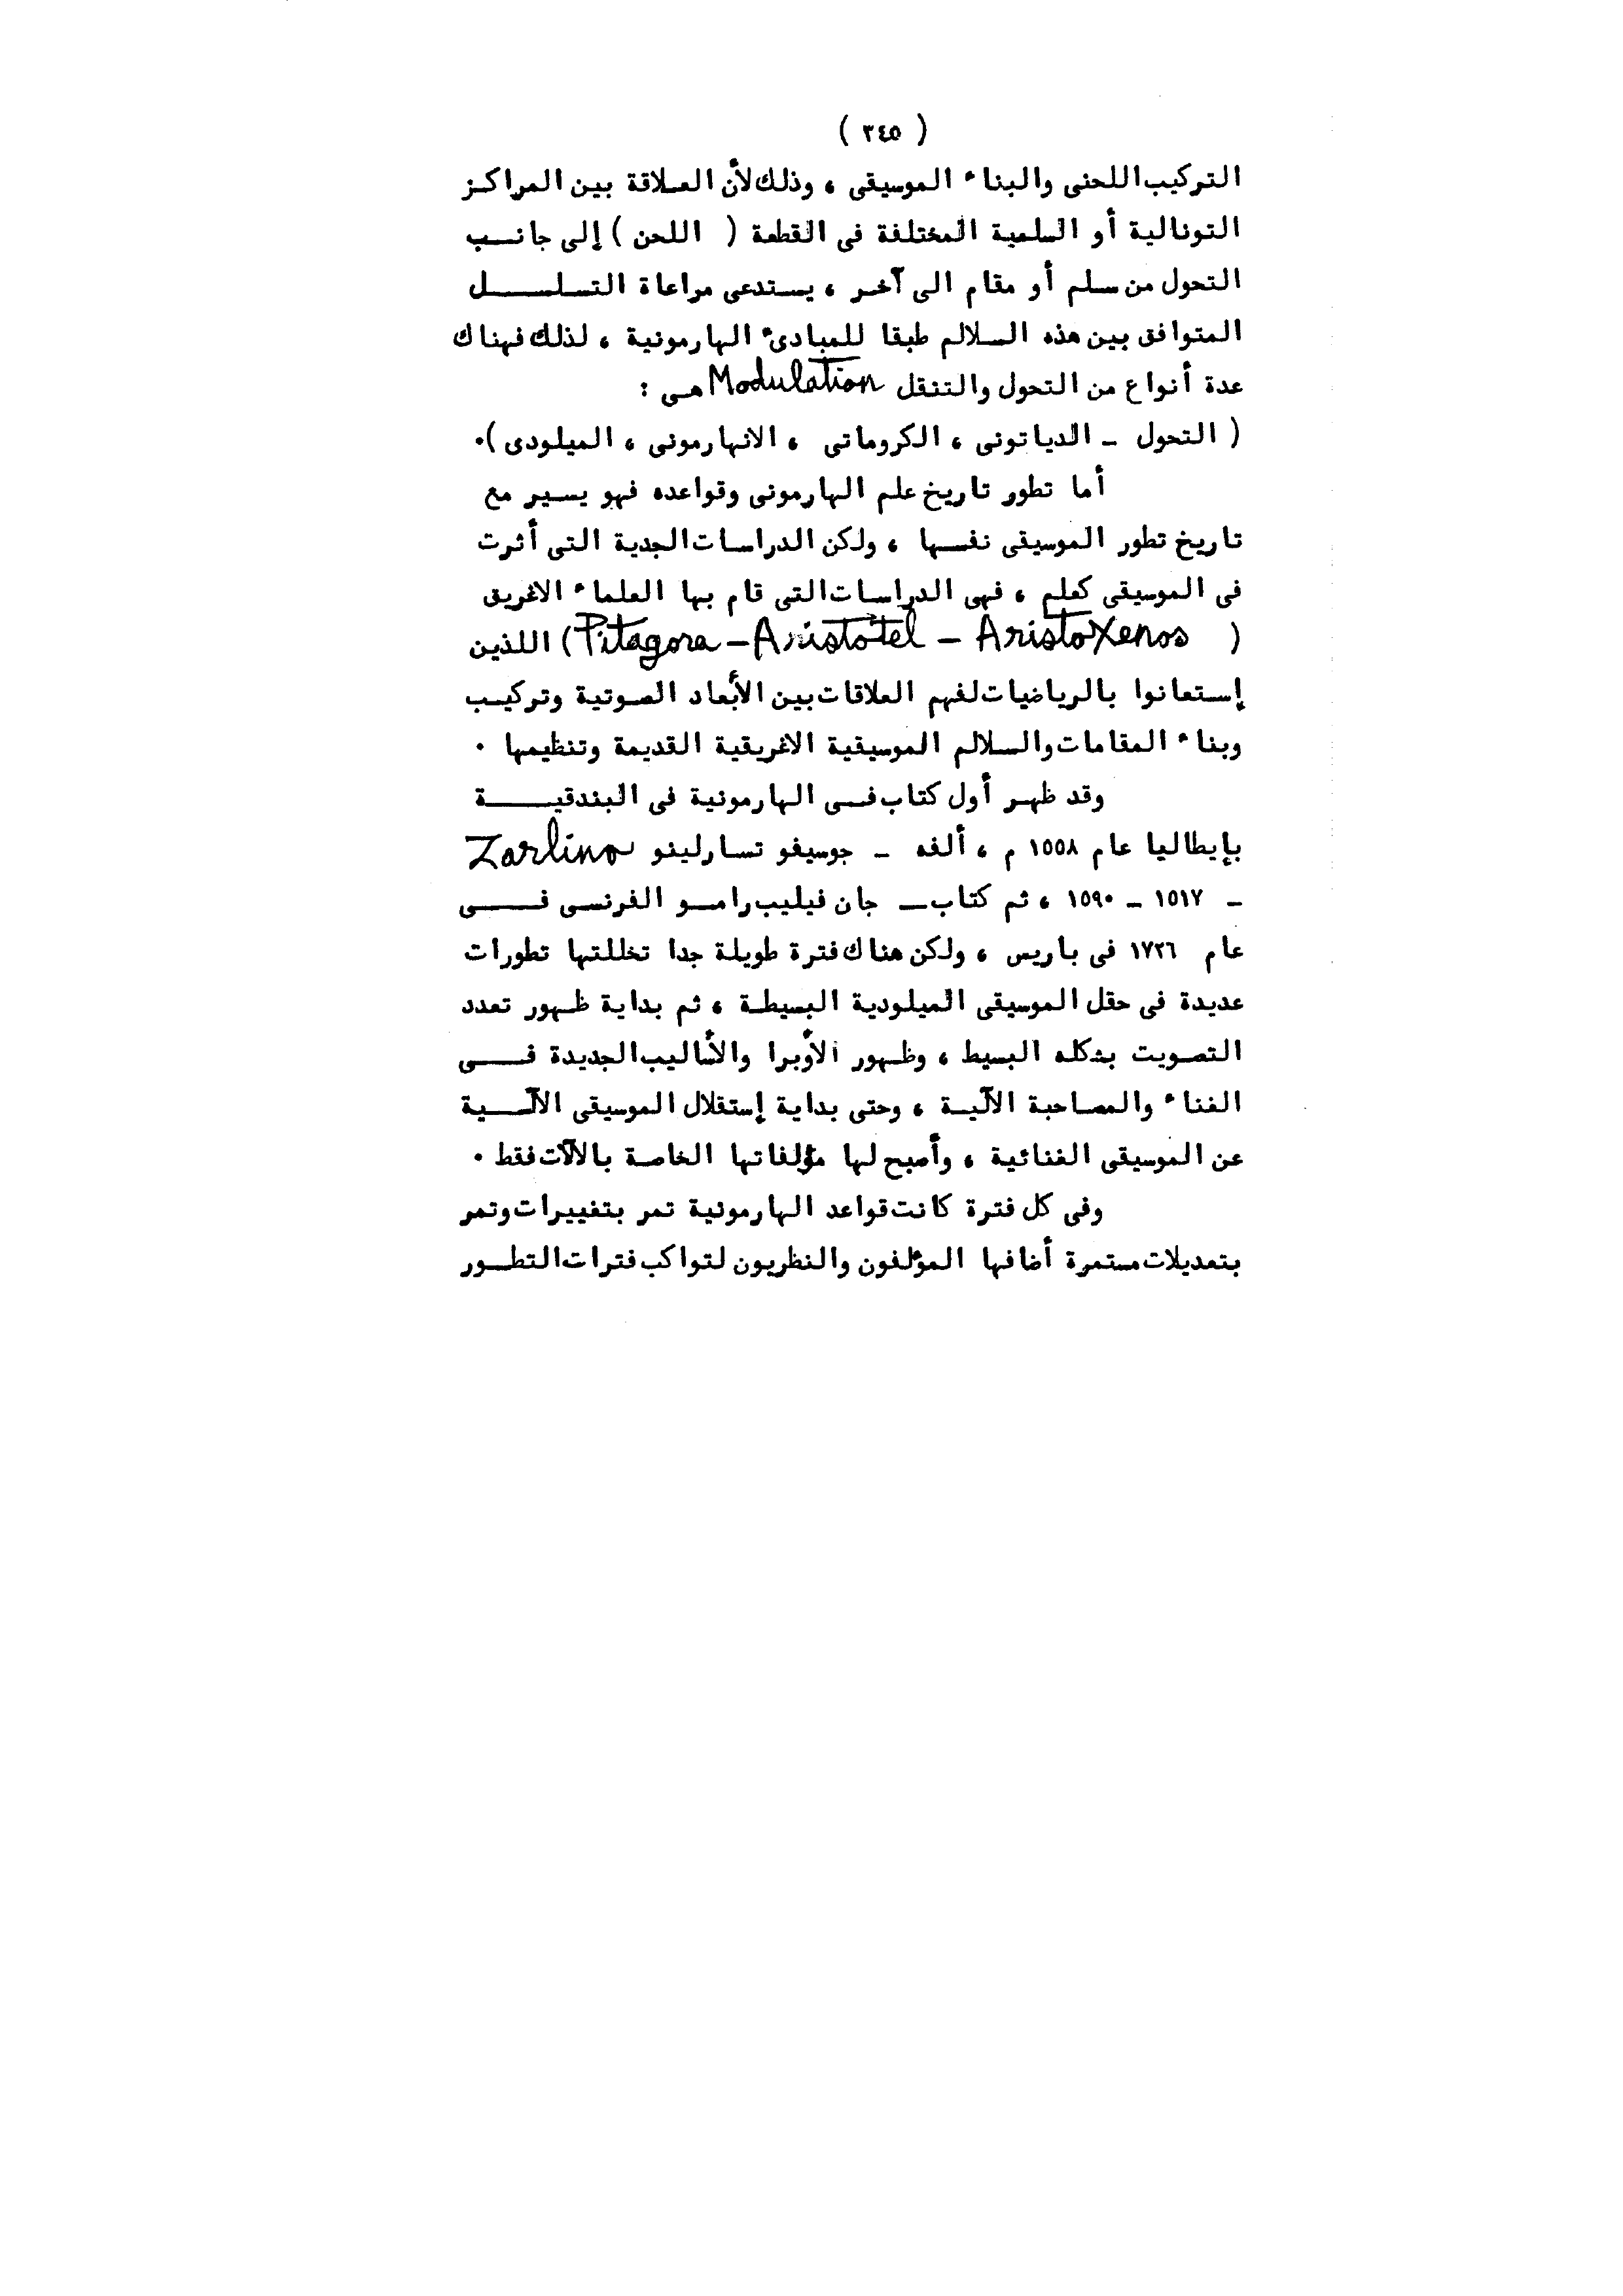 ( ٣٤٥ )
التركيب اللحنى والبناء الموسيقى ، وذلك لأن العلاقة بين المراكز
التونالية أو السلمية المختلفة فى القطعة ( اللحن ) إلى جانب
التحول من سلم أو مقام الى آخر ، يستدعى مراعاة التسلسل
المتوافق بين هذه السلالم طبقا للمبادىء الهارمونية ، لذلك فهناك
عدة أنواع من التحول والتنقل Modulation هى :
( التحول - الدياتونى ، الكروماتى ، الانهارمونى ، الميلودى ).
أما تطور تاريخ علم الهارمونى وقواعده فهو يسير مع
تاريخ تطور الموسيقى نفسها ، ولكن الدراسات الجدية التى أثرت
فى الموسيقى كعلم ، فهى الدراسات التى قام بها العلماء الاغريق
( Pitagora - Aristotel - AristoXenos ) اللذين
إستعانوا بالرياضيات لفهم العلاقات بين الأبعاد الصوتية وتركيب
وبناء المقامات والسلالم الموسيقية الاغريقية القديمة وتنظيمها .
وقد ظهر أول كتاب فى الهارمونية فى البندقية
بإيطاليا عام ١٥٥٨ م ، ألفه - جوسيفو تسارلينو Zarlino
- ١٥١٧ - ١٥٩٠ ، ثم كتاب - جان فيليب رامو الفرنسى فى
عام ١٧٢٦ فى باريس ، ولكن هناك فترة طويلة جدا تخللتها تطورات
عديدة فى حقل الموسيقى الميلودية البسيطة ، ثم بداية ظهور تعدد
التصويت بشكله البسيط ، وظهور الأوبرا والأساليب الجديدة فى
الغناء والمصاحبة الآلية ، وحتى بداية إستقلال الموسيقى الآلية
عن الموسيقى الغنائية ، وأصبح لها مؤلفاتها الخاصة بالآلات فقط .
وفى كل فترة كانت قواعد الهارمونية تمر بتغييرات وتمر
بتعديلات مستمرة أضافها المؤلفون والنظريون لتواكب فترات التطور